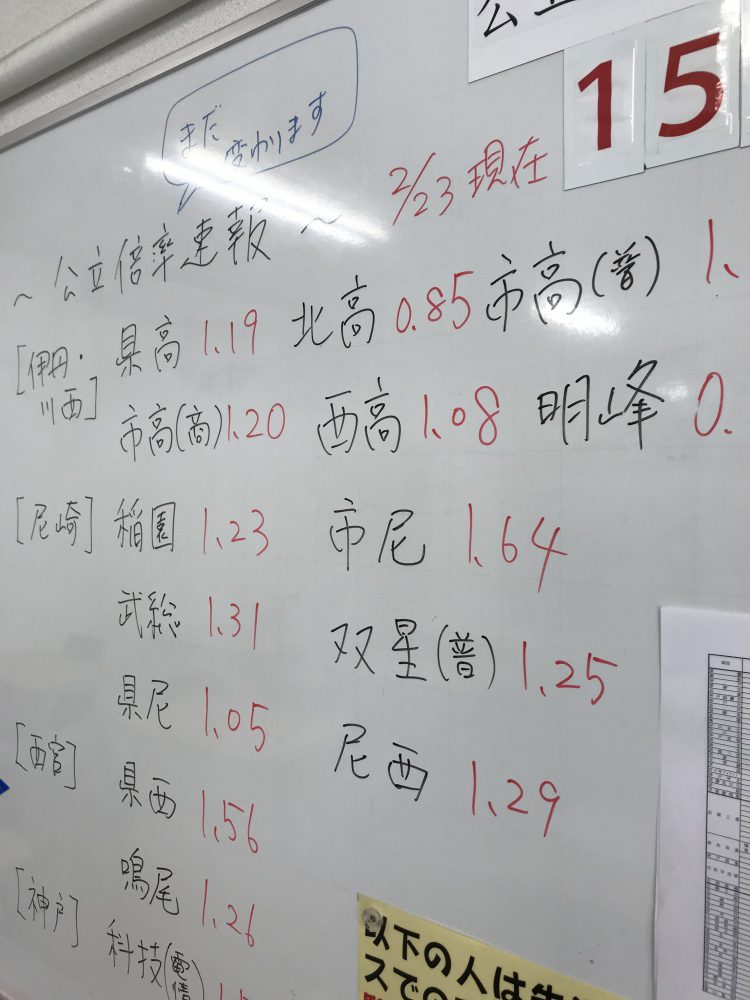 公立
15
まだ
変わります
～公立倍率速報～ 2/23現在
[伊丹・川西] 県高 1.19 北高 0.85 市高(普) 1.
市高(商) 1.20 西高 1.08 明峰 0.
[尼崎] 稲園 1.23 市尼 1.64
武総 1.31 双星(普) 1.25
県尼 1.05 尼西 1.29
[西宮] 県西 1.56
鳴尾 1.26
[神戸] 科技(電情)
以下の人は
スでの